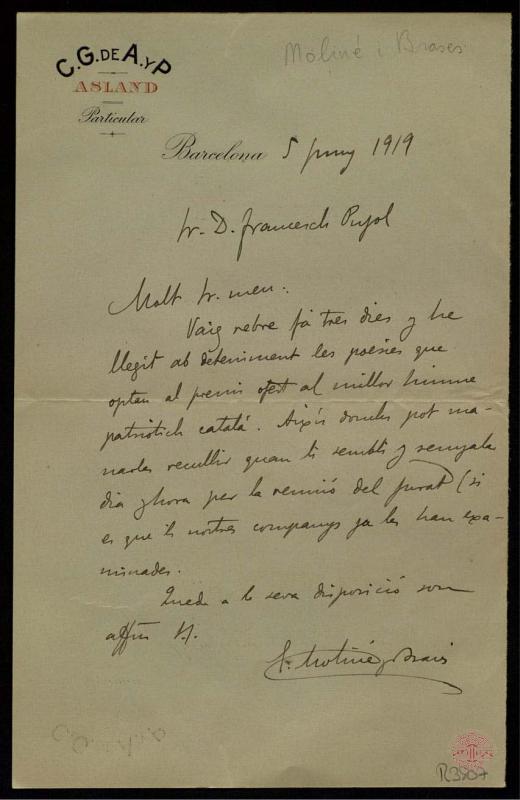 Moliné i Brases
C.G. DE A. Y P.
ASLAND
Particular
Barcelona 5 juny 1919
Sr. D. Francesch Pujol
Molt Sr. meu:
Vaig rebre fá tres dies y he
llegit ab deteniment les poesies que
optan al premi ofert al millor himne
patriotich catalá. Aixís donchs pot ma-
narles recullir quan li sembli y senyalar
dia y hora per la reunió del Jurat (si
es que 'ls nostres companys ja les han exa-
minades.
Queda a la seva disposició son
affm S.
E. Moliné y Brasés
C.G. DE A. Y P.
R3807